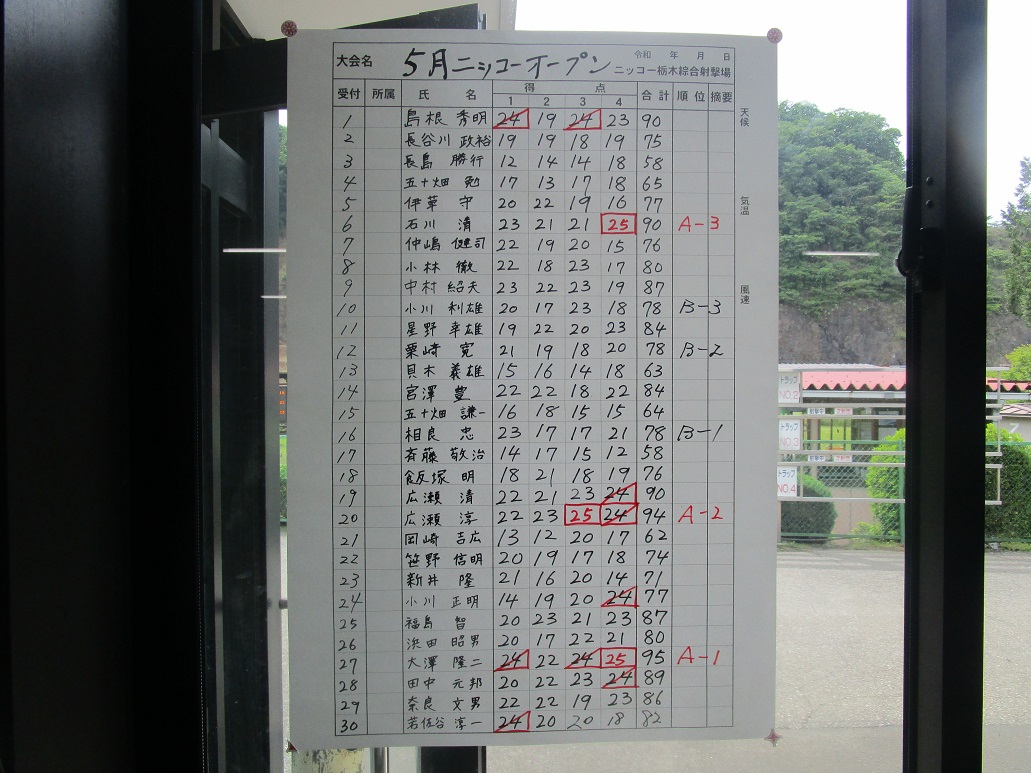 大会名 5月ニッコーオープン 令和 年 月 日
ニッコー栃木綜合射撃場
受付 所属 氏 名 得 点 合計 順位 摘要
1 2 3 4
1 島根 秀明 24 19 24 23 90
2 長谷川 政裕 19 19 18 19 75
3 長島 勝行 12 14 14 18 58
4 五十畑 勉 17 13 17 18 65
5 伊華 守 20 22 19 16 77
6 石川 清 23 21 21 25 90 A-3
7 仲嶋 健司 22 19 20 15 76
8 小林 徹 22 18 23 17 80
9 中村 紹夫 23 22 23 19 87
10 小川 利雄 20 17 23 18 78 B-3
11 星野 幸雄 19 22 20 23 84
12 栗崎 寛 21 19 18 20 78 B-2
13 貝木 義雄 15 16 14 18 63
14 宮澤 豊 22 22 18 22 84
15 五十畑 謙一 16 18 15 15 64
16 相良 忠 23 17 17 21 78 B-1
17 斉藤 敬治 14 17 15 12 58
18 飯塚 明 18 21 18 19 76
19 広瀬 清 22 21 23 24 90
20 広瀬 淳 22 23 25 24 94 A-2
21 岡崎 吉広 13 12 20 17 62
22 笹野 信明 20 19 17 18 74
23 新井 隆 21 16 20 14 71
24 小川 正明 14 19 20 24 77
25 福島 智 20 23 21 23 87
26 浜田 昭男 20 17 22 21 80
27 大澤 隆二 24 22 24 25 95 A-1
28 田中 元邦 20 22 23 24 89
29 奈良 文男 22 22 19 23 86
30 若佐谷 淳一 24 20 20 18 82
天候
気温
風速
トラップ
NO.2
トラップ
NO.3
トラップ
NO.4